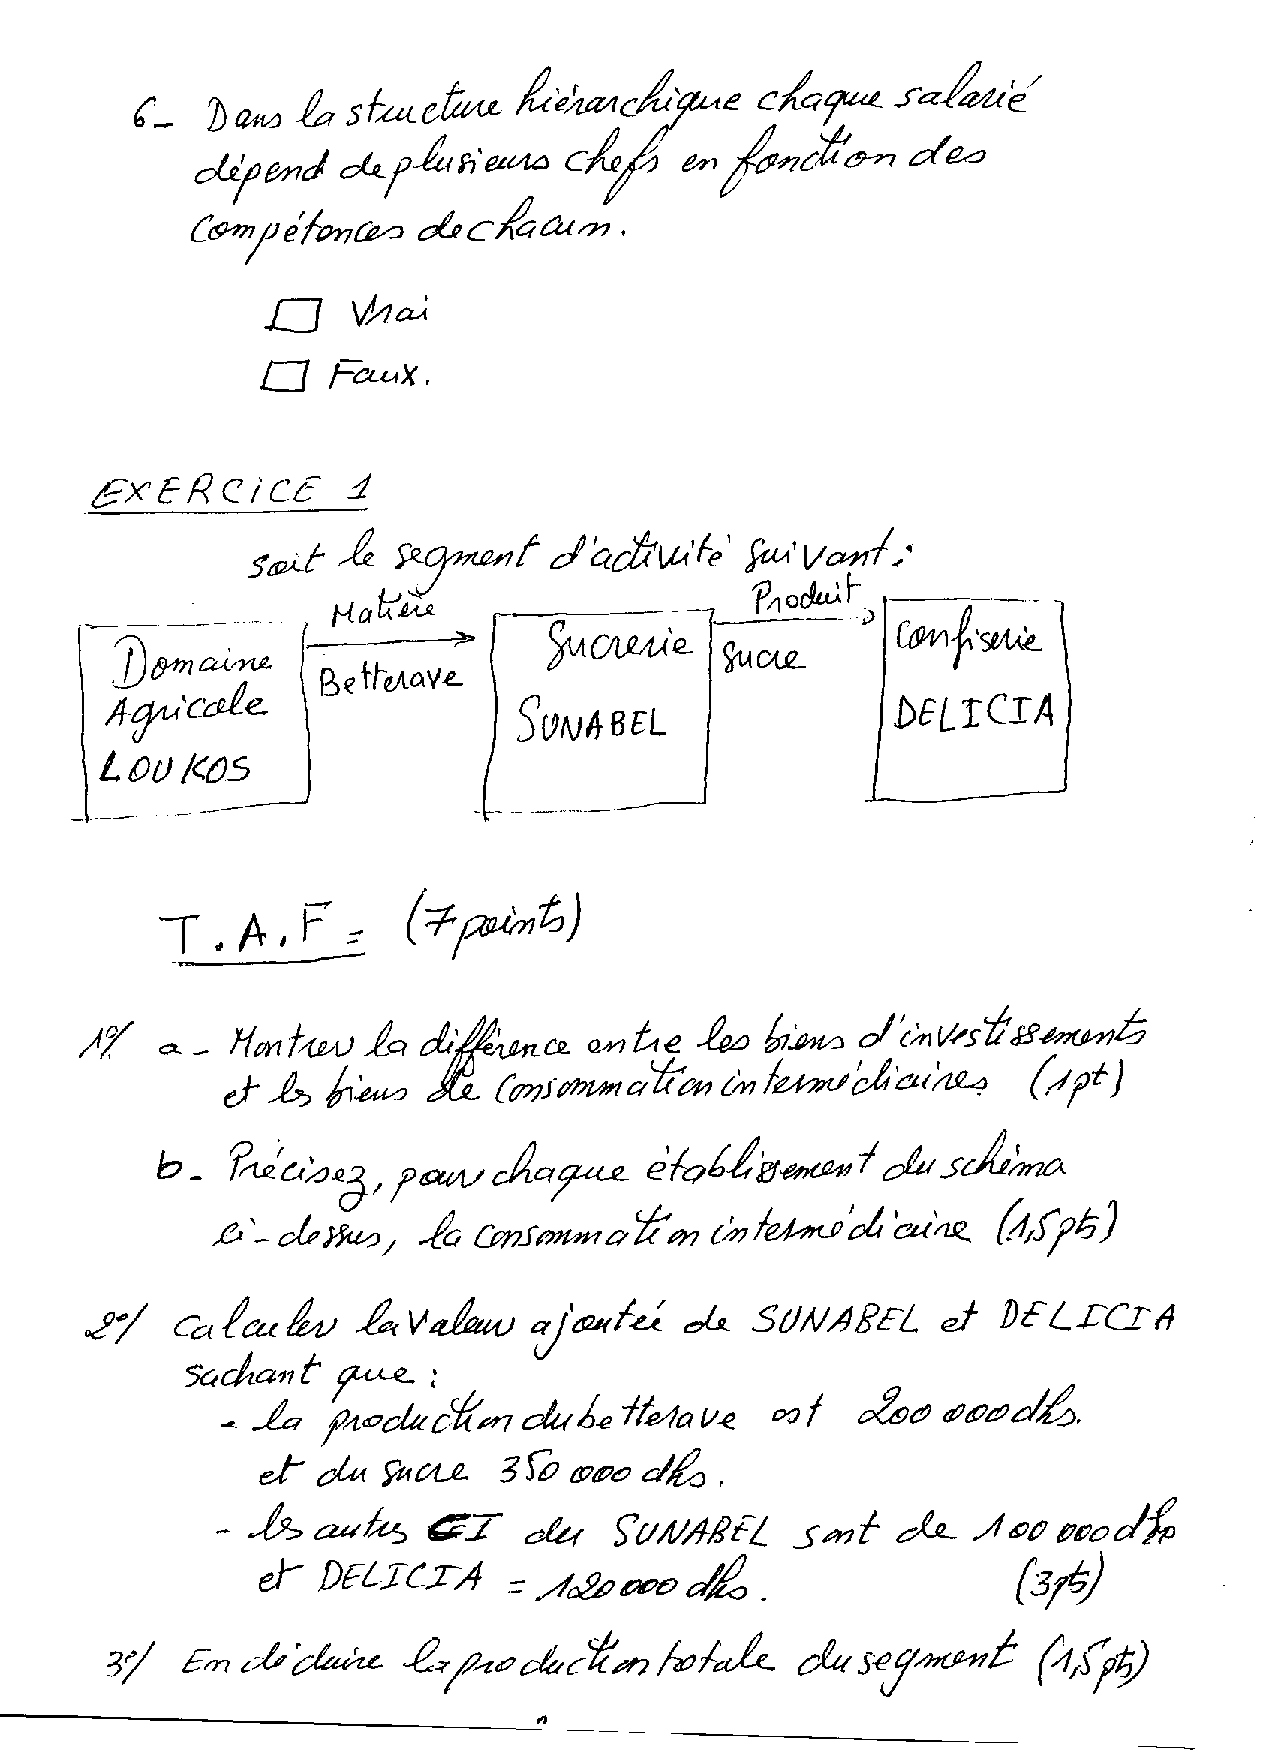 6_ Dans la structure hiérarchique chaque salarié
dépend de plusieurs chefs en fonction des
Compétences de chacun.
Vrai
Faux.
EXERCICE 1
soit le segment d'activité suivant :
Domaine
Agricole
LOUKOS
Matière
Betterave
Sucrerie
SUNABEL
Produit
Sucre
Confiserie
DELICIA
T.A.F = (7 points)
1°/ a - Montrer la différence entre les biens d'investissements
et les biens de Consommation intermédiaires (1pt)
b - Précisez, pour chaque établissement du schéma
ci-dessus, la consommation intermédiaire (1,5 pts)
2°/ Calculer la Valeur ajoutée de SUNABEL et DELICIA
sachant que :
- la production du betterave est 200 000 dhs.
et du sucre 350 000 dhs.
- les autres CI du SUNABEL sont de 100 000 dhs
et DELICIA = 120 000 dhs. (3pts)
3°/ En déduire la production totale du segment (1,5 pts)